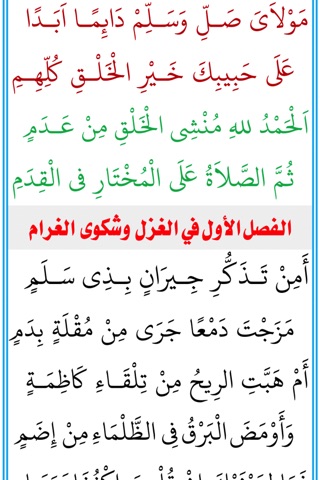 مَوْلَاىَ صَلِّ وَسَلِّمْ دَائِمًا اَبَدًا
عَلَى حَبِيبِكَ خَيْرِ الْخَلْقِ كُلِّهِمِ
اَلْحَمْدُ للهِ مُنْشِى الْخَلْقِ مِنْ عَدَمٍ
ثُمَّ الصَّلَاةُ عَلَى الْمُخْتَارِ فِى الْقِدَمِ
الفصل الأول في الغزل وشكوى الغرام
أَمِنْ تَذَكُّرِ جِيرَانٍ بِذِى سَلَمٍ
مَزَجْتَ دَمْعًا جَرَى مِنْ مُقْلَةٍ بِدَمِ
أَمْ هَبَّتِ الرِيحُ مِنْ تِلْقَاءِ كَاظِمَةٍ
وَأَوْمَضَ الْبَرْقُ فِى الظَّلْمَاءِ مِنْ إِضَمِ